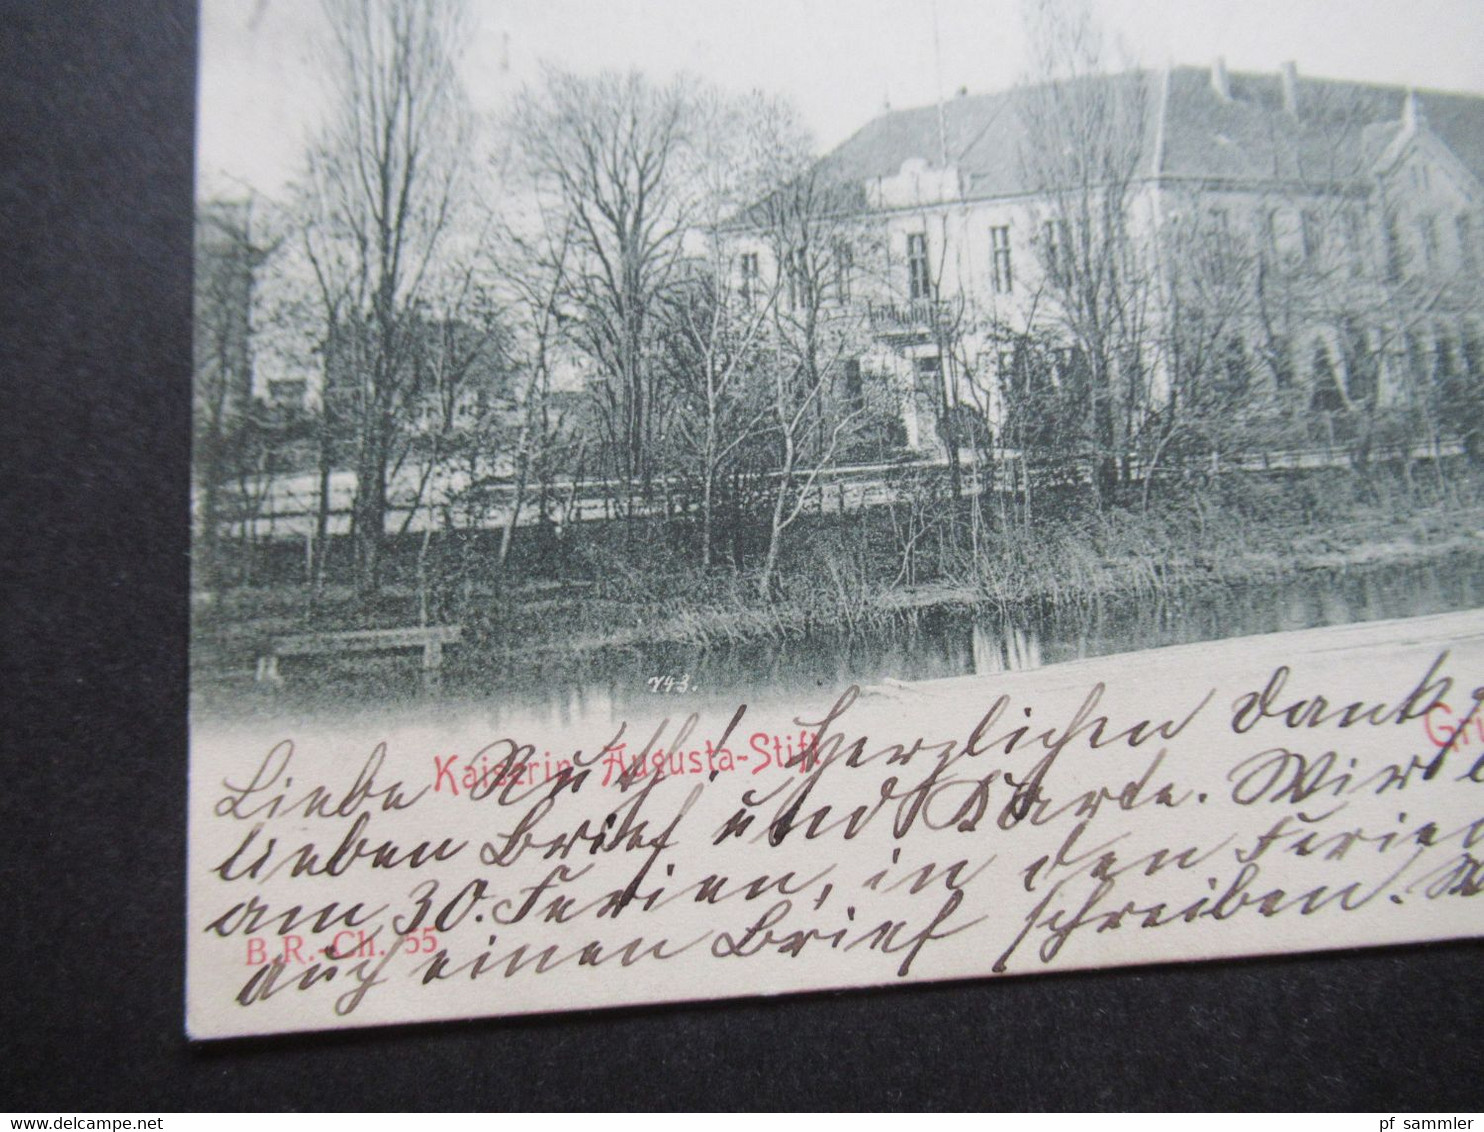 743.
Kaiserin Augusta-Stift
Gr
Liebe Ruth! Herzlichen Dank
lieben Brief und Karte. Wir
am 30. Ferien, in den Ferien
B.R.-Ch. 55
auch einen Brief schreiben.
pf sammler